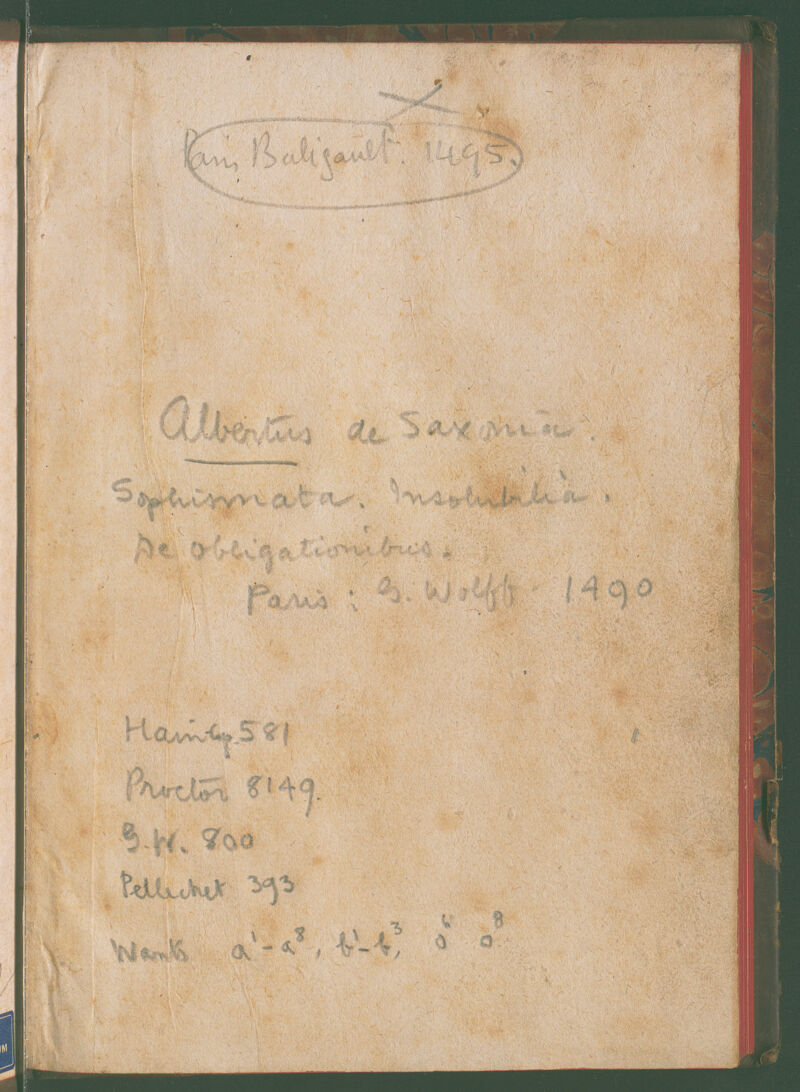 Paris, Baligault. 1495.
Albertus de Saxonia.
Sophismata. Insolubilia.
De obligationibus.
Paris: G. Wolff 1490
Hain-Cop. 581
Proctor 8149.
G.W. 800
Pellechet 393
Wants a¹-a⁸, b¹-b³, o⁶ o⁸